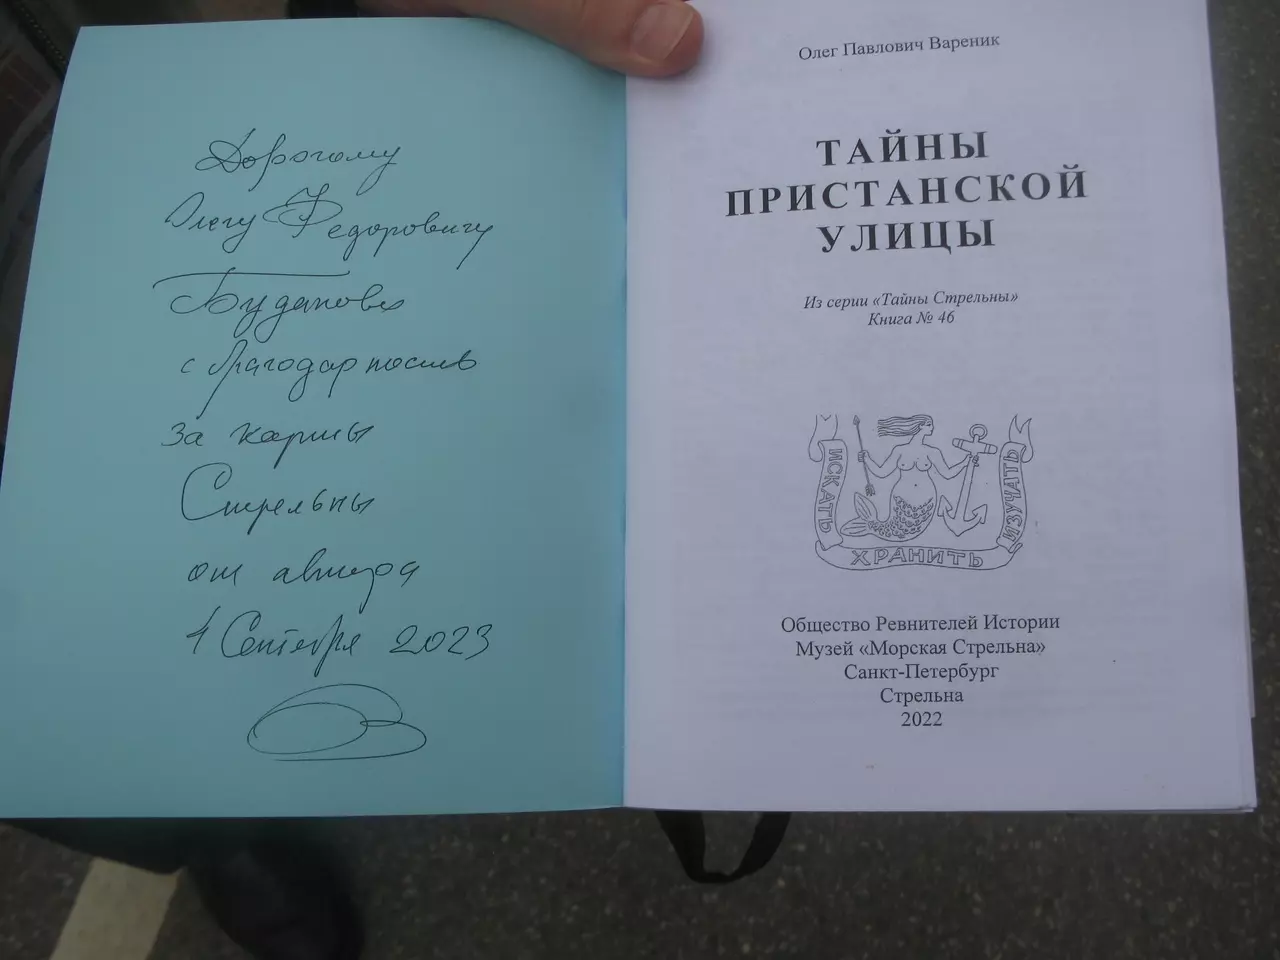 Дорогому
Олегу Федоровичу
Буданову
с благодарностью
за карты
Стрельны
от автора
1 Сентября 2023
Олег Павлович Вареник
ТАЙНЫ
ПРИСТАНСКОЙ
УЛИЦЫ
Из серии «Тайны Стрельны»
Книга № 46
ИСКАТЬ
ХРАНИТЬ
ИЗУЧАТЬ
Общество Ревнителей Истории
Музей «Морская Стрельна»
Санкт-Петербург
Стрельна
2022